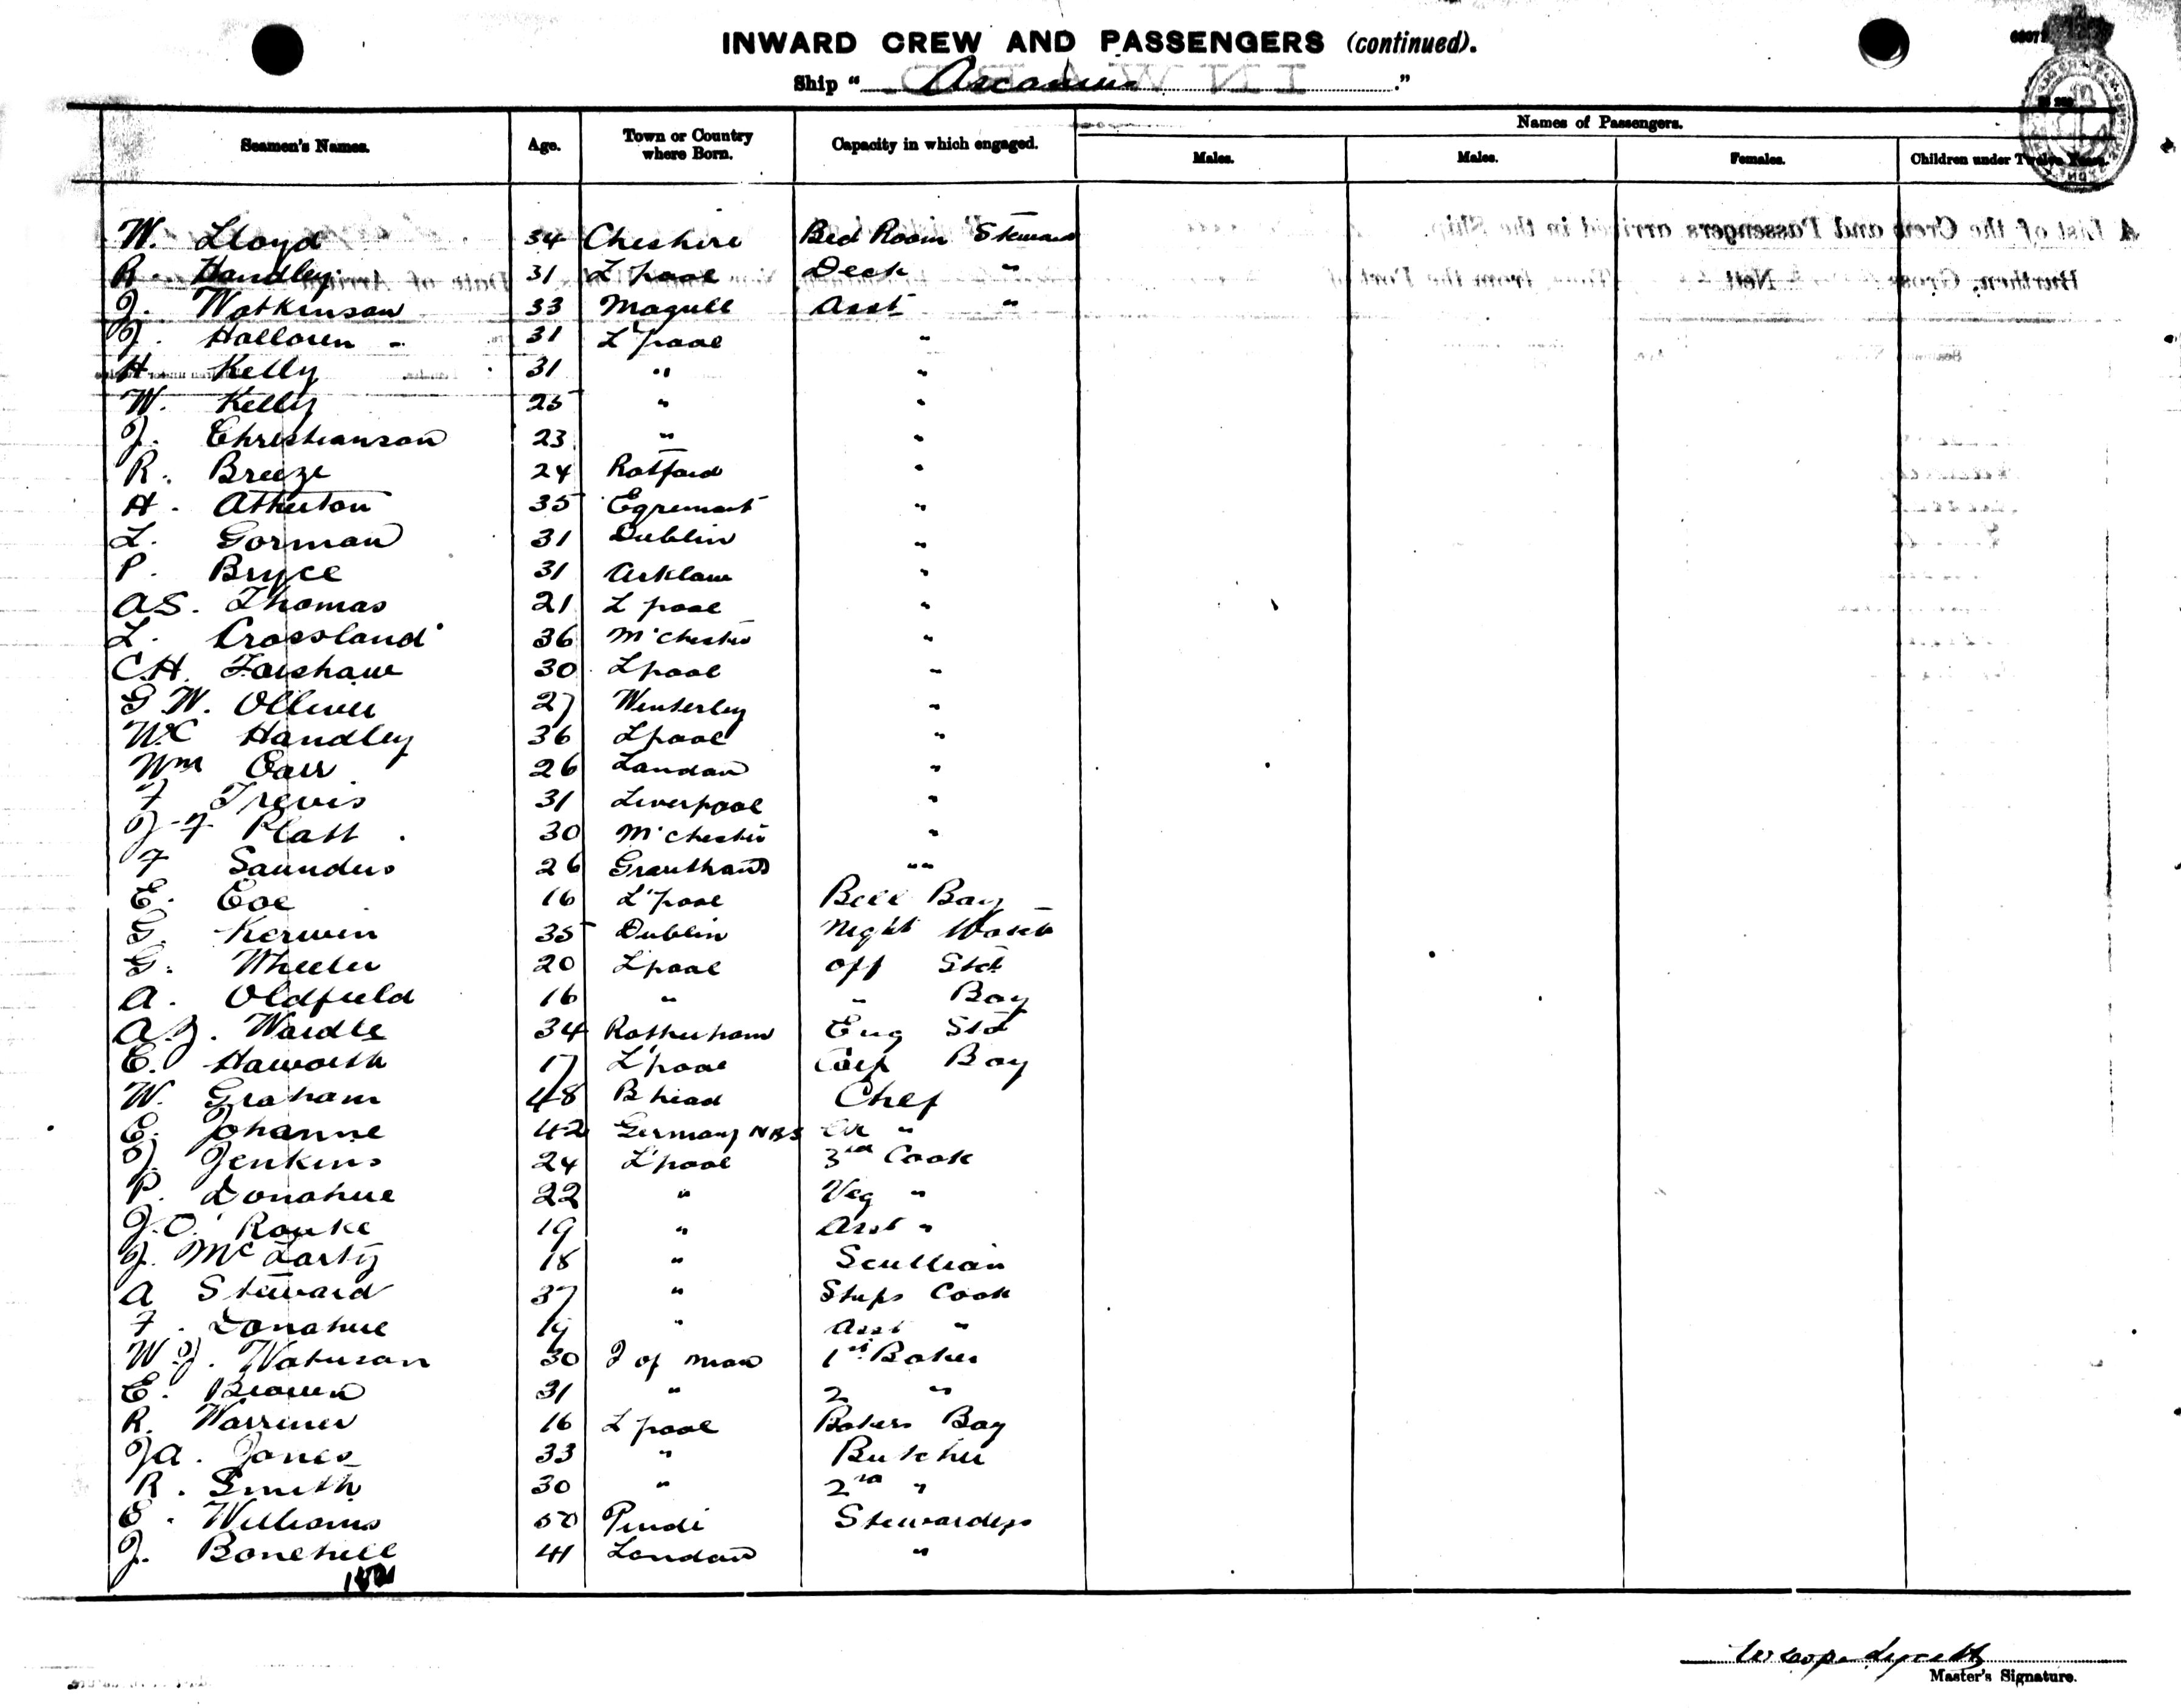 INWARD CREW AND PASSENGERS (continued).
Ship " Ascanius ."
Seamen's Names. Age. Town or Country where Born. Capacity in which engaged. Names of Passengers.
Males. Males. Females. Children under Twelve Years.
W. Lloyd 34 Cheshire Bed Room Steward
R. Handley 31 L'pool Deck "
J. Watkinson 33 Magull Asst "
J. Halloren 31 L'pool "
H. Kelly 31 " "
W. Kelly 25 " "
J. Christianson 23 " "
R. Breeze 24 "
H. Atherton 35 Egremont "
L. Gorman 31 Dublin "
P. Bryce 31 Arklow "
A S. Thomas 21 L'pool "
L. Crossland 36 M'chester "
C.H. Forshaw 30 L'pool "
G.W. Olliver 27 Winterley "
W.C Handley 36 Lpool "
Wm Carr 26 London "
F Trevis 31 Liverpool "
J-F Platt 30 M'chester "
F Saunders 26 Grantham ""
E. Coe 16 L'pool Bell Boy
G. Kerwin 35 Dublin Night Watch
G. Wheeler 20 Lpool Off Std
A. Oldfield 16 " " Boy
A.J. Wardle 34 Rotherham Eng Std
E. Haworth 17 L'pool Boy
W. Graham 48 B'head Chef
C. Johanne 42 Germany NBS "
J. Jenkins 24 L'pool 3rd Cook
P. Donahue 22 " Veg "
J.O' Rouke 19 " Asst "
J. McLarty 18 " Scullion
A Steward 37 " Ships Cook
F. Donahue 19 " Asst "
W J. Waterson 30 I of Man 1st Baker
E. Brown 31 " 2 "
R. Warriner 16 L'pool Bakers Boy
JA. Jones 33 " Butcher
R. Smith 30 " 2nd "
E. Williams 50 Pindi Stewardess
J. Bonehill 41 London "
Master's Signature.